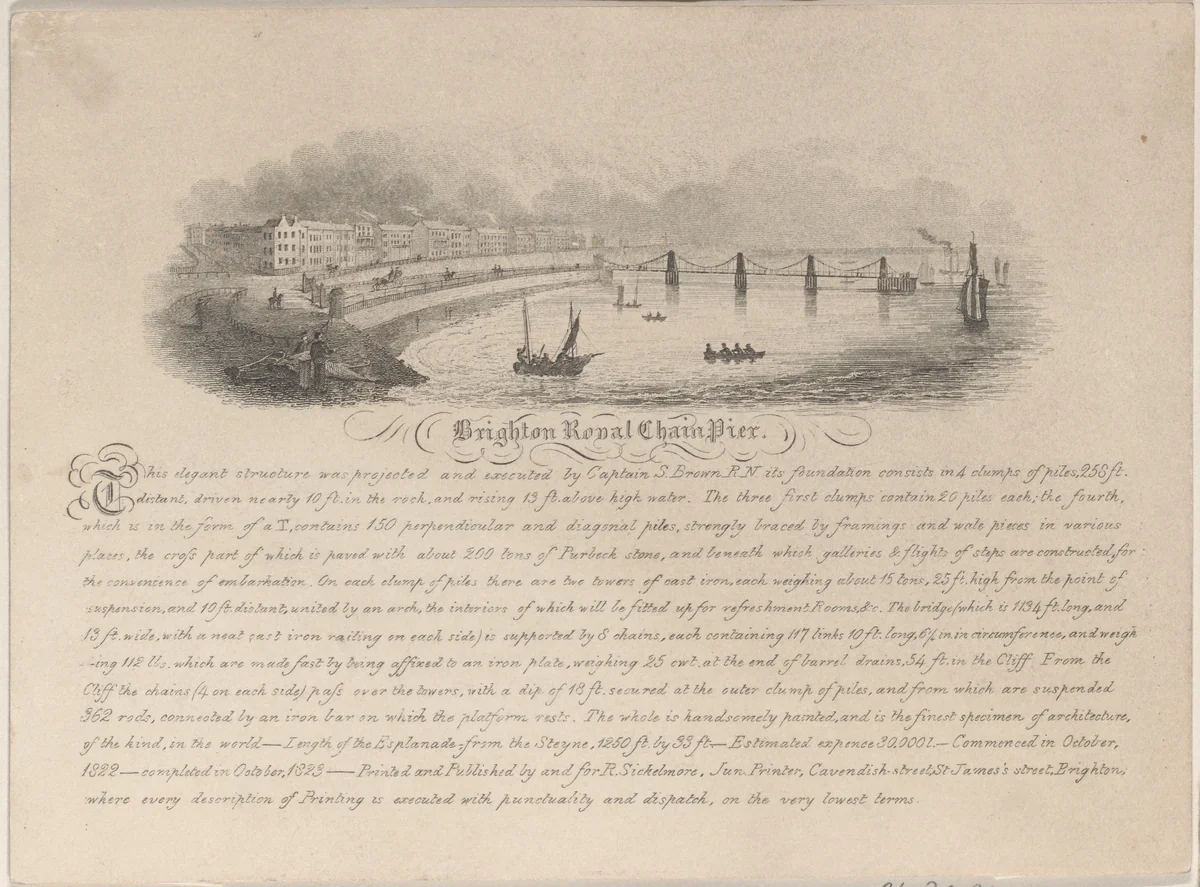 Brighton Royal Chain Pier.
This elegant structure was projected and executed by Captain S. Brown R.N its foundation consists in 4 clumps of piles, 258 ft.
distant, driven nearly 10 ft. in the rock, and rising 13 ft. above high water. The three first clumps contain 20 piles each; the fourth,
which is in the form of a T, contains 150 perpendicular and diagonal piles, strongly braced by framings and wale pieces in various
places, the croſs part of which is paved with about 200 tons of Purbeck stone, and beneath which galleries & flights of steps are constructed, for
the convenience of embarkation. On each clump of piles there are two towers of cast iron, each weighing about 15 tons, 25 ft. high from the point of
suspension, and 10 ft. distant, united by an arch, the interiors of which will be fitted up for refreshment Rooms, &c. The bridge (which is 1134 ft. long, and
13 ft. wide, with a neat cast iron railing on each side) is supported by 8 chains, each containing 117 links 10 ft. long, 6¼ in in circumference, and weigh
-ing 112 lbs. which are made fast by being affixed to an iron plate, weighing 25 cwt. at the end of barrel drains, 54 ft. in the Cliff. From the
Cliff the chains (4 on each side) paſs over the towers, with a dip of 18 ft. secured at the outer clump of piles, and from which are suspended
362 rods, connected by an iron bar on which the platform rests. The whole is handsomely painted, and is the finest specimen of architecture,
of the kind, in the world — Length of the Esplanade from the Steyne, 1250 ft. by 33 ft — Estimated expence 30,000l. — Commenced in October,
1822 — completed in October, 1823 — Printed and Published by and for R. Sickelmore, Jun. Printer, Cavendish-street, St James's street, Brighton,
where every description of Printing is executed with punctuality and dispatch, on the very lowest terms.